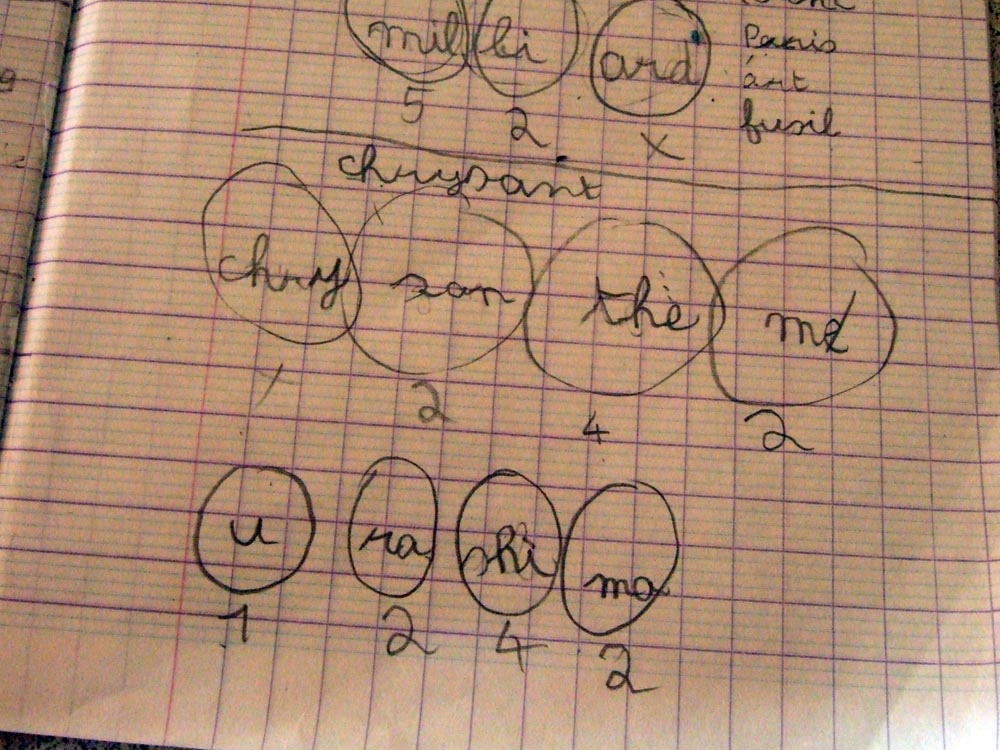 mil li ard
5 2 x
Paris
art
fusil
chrysant
chry san thè me
x 2 4 2
u ra shi ma
1 2 4 2